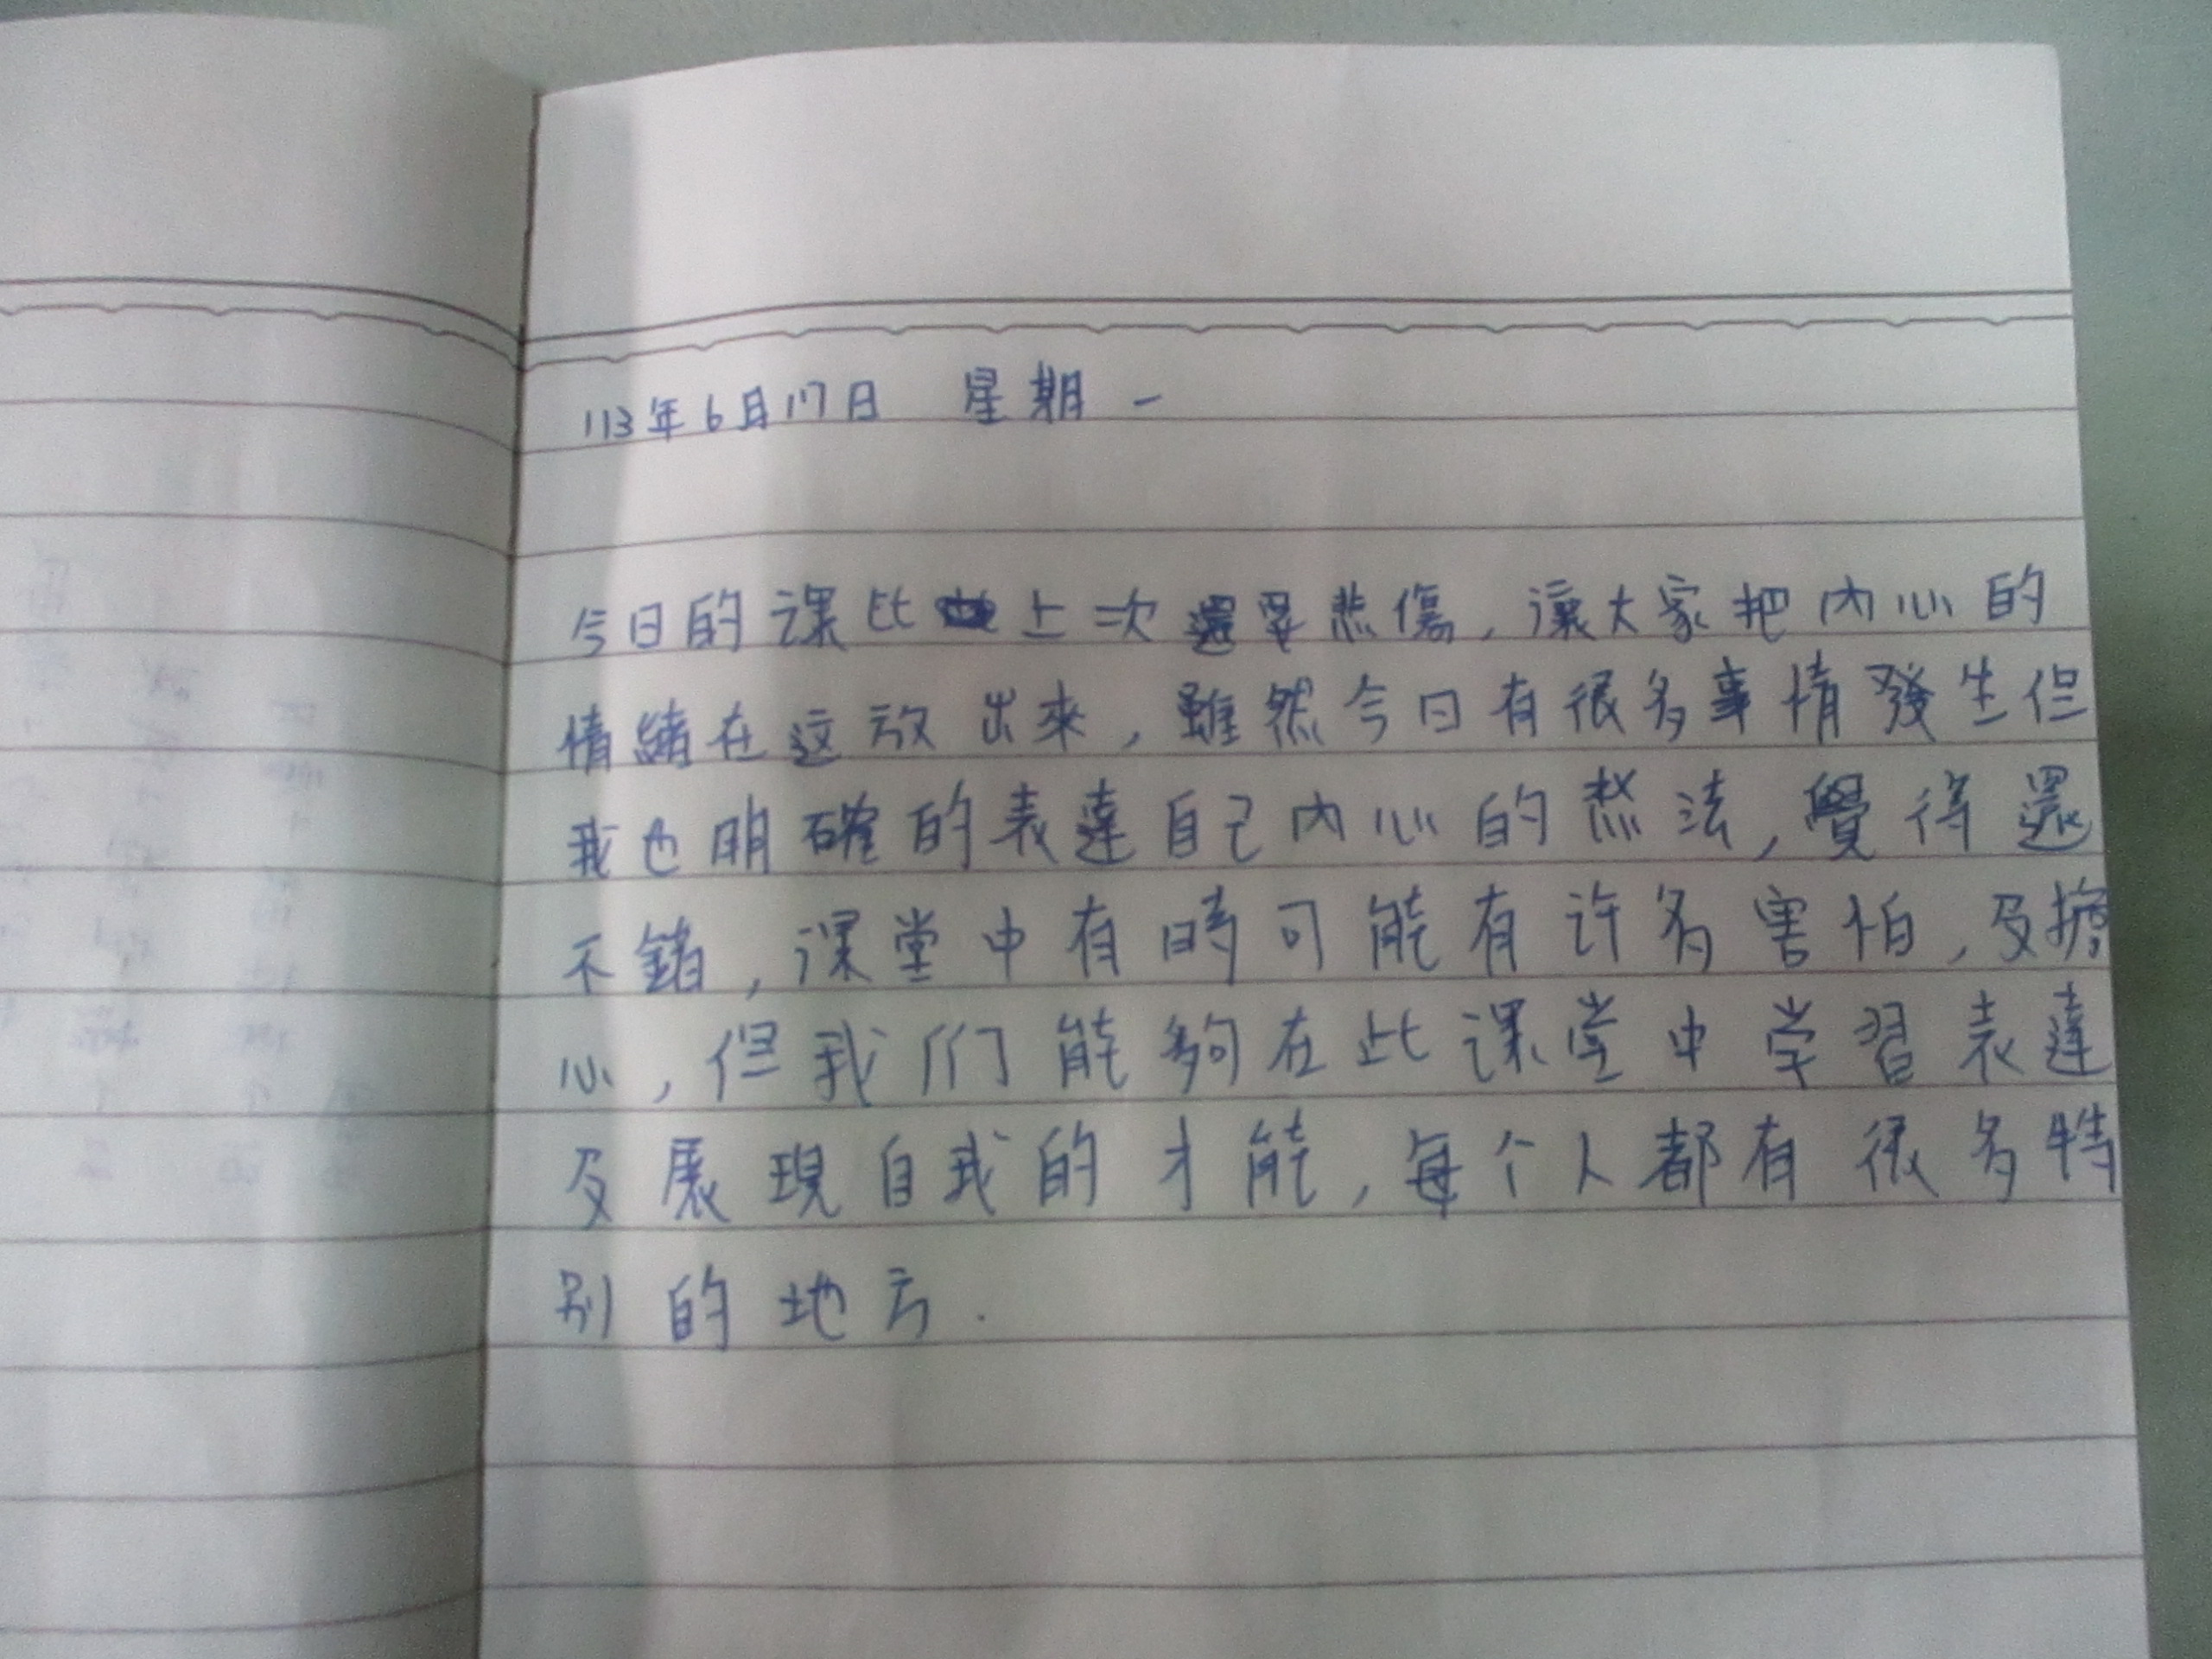 113年6月17日 星期一
今日的課比上次還要悲傷，讓大家把內心的
情緒在这放出來，雖然今日有很多事情發生但
我也明確的表達自己內心的想法，覺得還
不錯，課堂中有時可能有許多害怕，及擔
心，但我们能夠在此課堂中学習表達
及展現自我的才能，每个人都有很多特
別的地方.